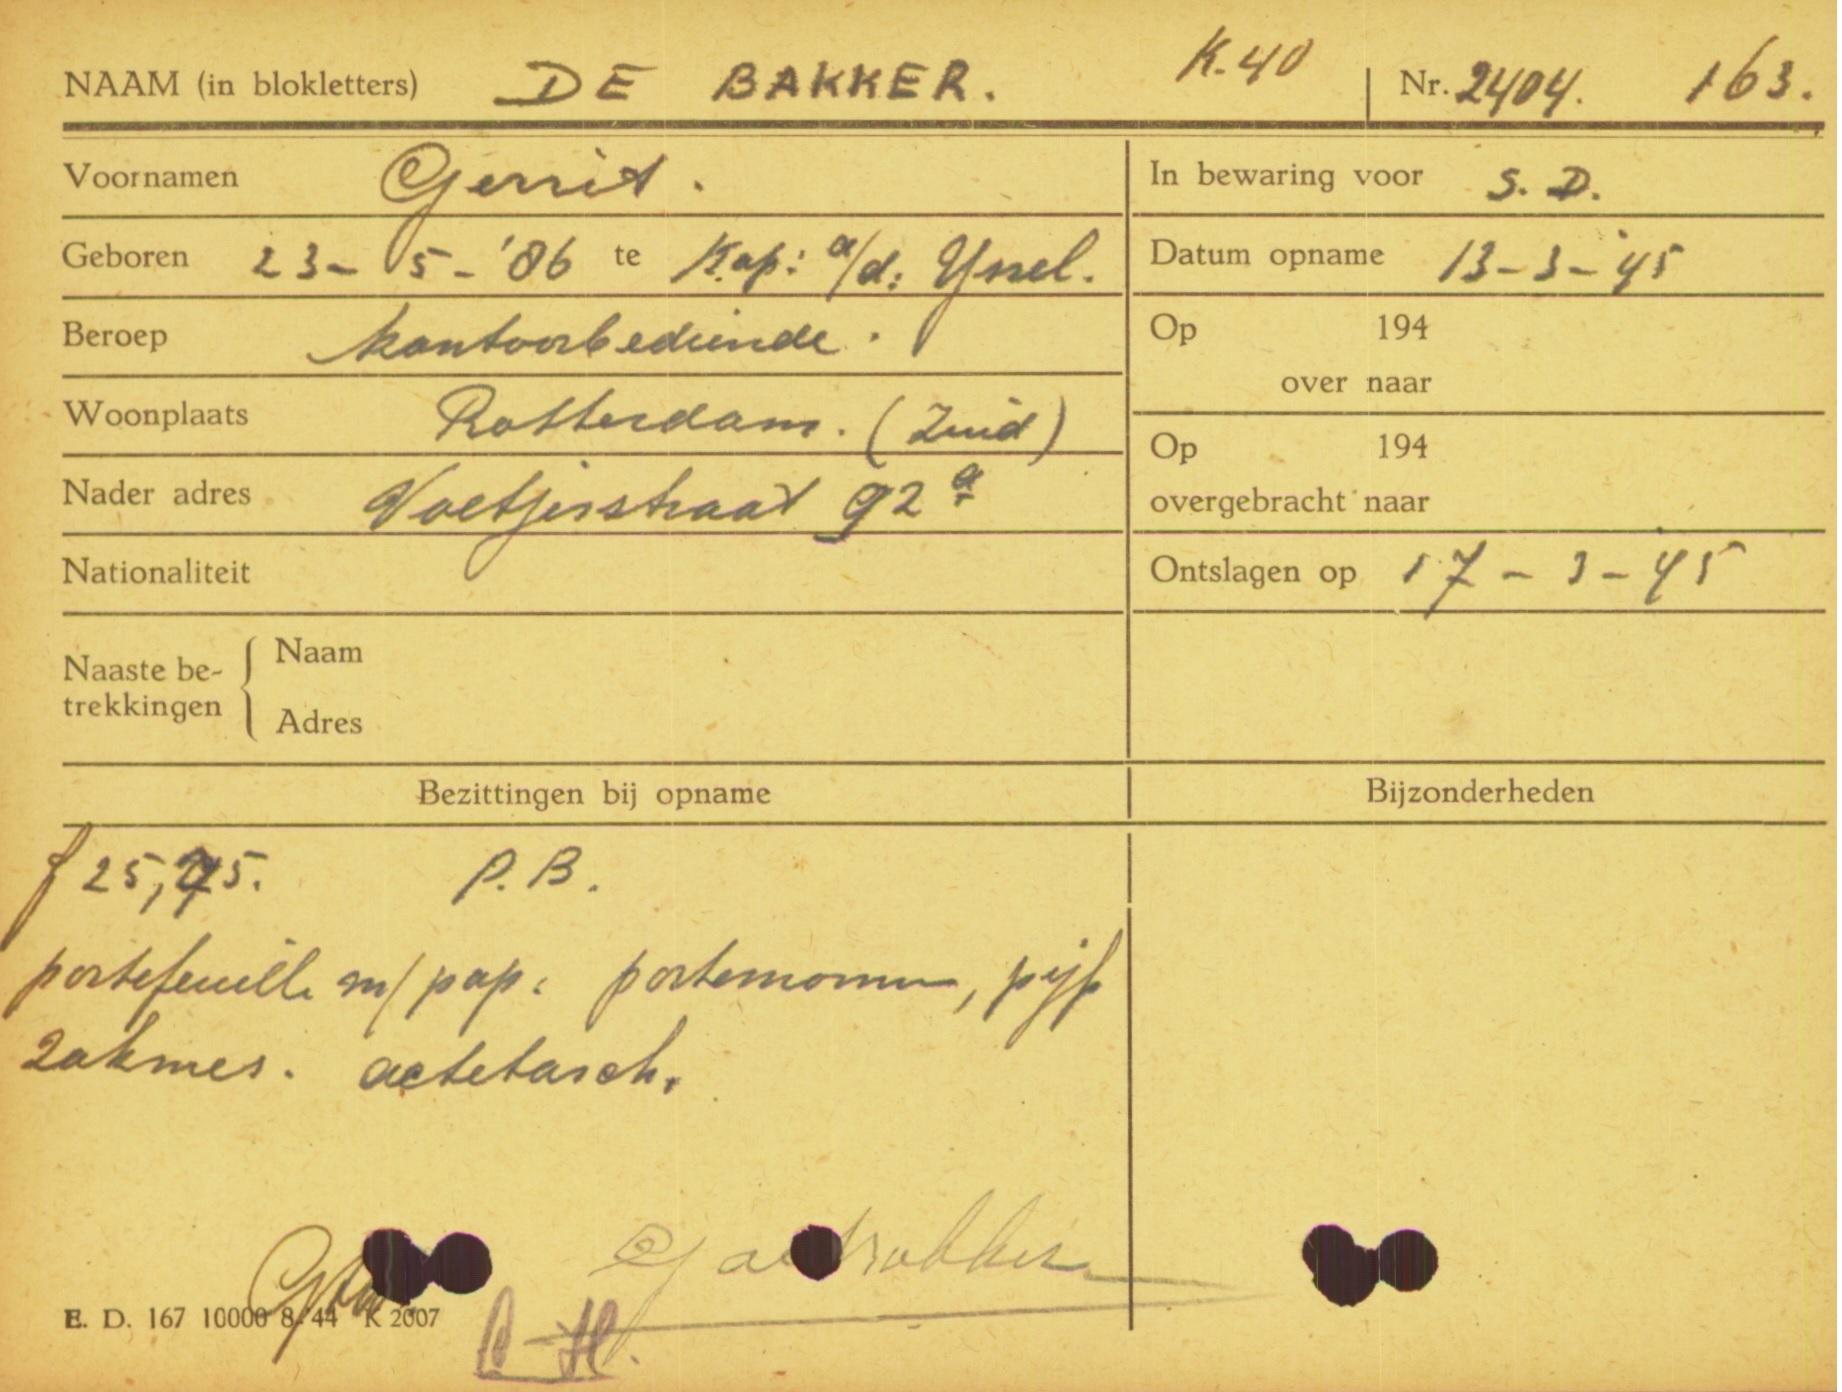 NAAM (in blokletters) DE BAKKER. K.40 Nr. 2404. 163.
Voornamen Gerrit. In bewaring voor S. D.
Geboren 23-5-'06 te Kap: a/d: IJssel. Datum opname 13-3-'45
Beroep kantoorbediende. Op 194
over naar
Woonplaats Rotterdam. (Zuid) Op 194
Nader adres Voetjesstraat 92a overgebracht naar
Nationaliteit Ontslagen op 17-3-45
Naaste be-
trekkingen
Naam
Adres
Bezittingen bij opname Bijzonderheden
f 25, P.B.
portefeuille m/ pap: portemonn, pijp
zakmes. actetasch.
E. D. 167 10000 8/44 K 2007